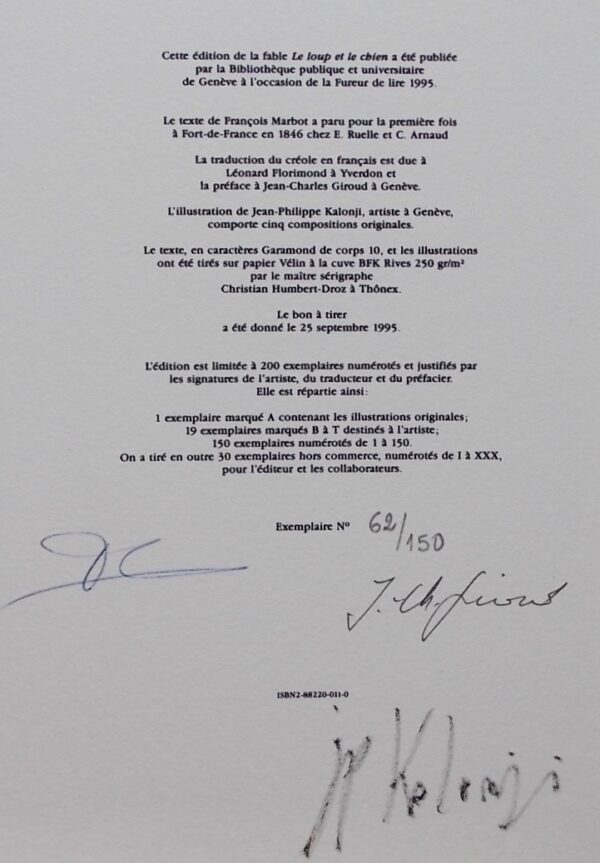 Cette édition de la fable Le loup et le chien a été publiée
par la Bibliothèque publique et universitaire
de Genève à l'occasion de la Fureur de lire 1995.
Le texte de François Marbot a paru pour la première fois
à Fort-de-France en 1846 chez E. Ruelle et C. Arnaud
La traduction du créole en français est due à
Léonard Florimond à Yverdon et
la préface à Jean-Charles Giroud à Genève.
L'illustration de Jean-Philippe Kalonji, artiste à Genève,
comporte cinq compositions originales.
Le texte, en caractères Garamond de corps 10, et les illustrations
ont été tirés sur papier Vélin à la cuve BFK Rives 250 gr/m²
par le maître sérigraphe
Christian Humbert-Droz à Thônex.
Le bon à tirer
a été donné le 25 septembre 1995.
L'édition est limitée à 200 exemplaires numérotés et justifiés par
les signatures de l'artiste, du traducteur et du préfacier.
Elle est répartie ainsi:
1 exemplaire marqué A contenant les illustrations originales;
19 exemplaires marqués B à T destinés à l'artiste;
150 exemplaires numérotés de 1 à 150.
On a tiré en outre 30 exemplaires hors commerce, numérotés de I à XXX,
pour l'éditeur et les collaborateurs.
Exemplaire N° 62/150
J. Ch. Giroud
ISBN2-88220-011-0
JP Kalonji